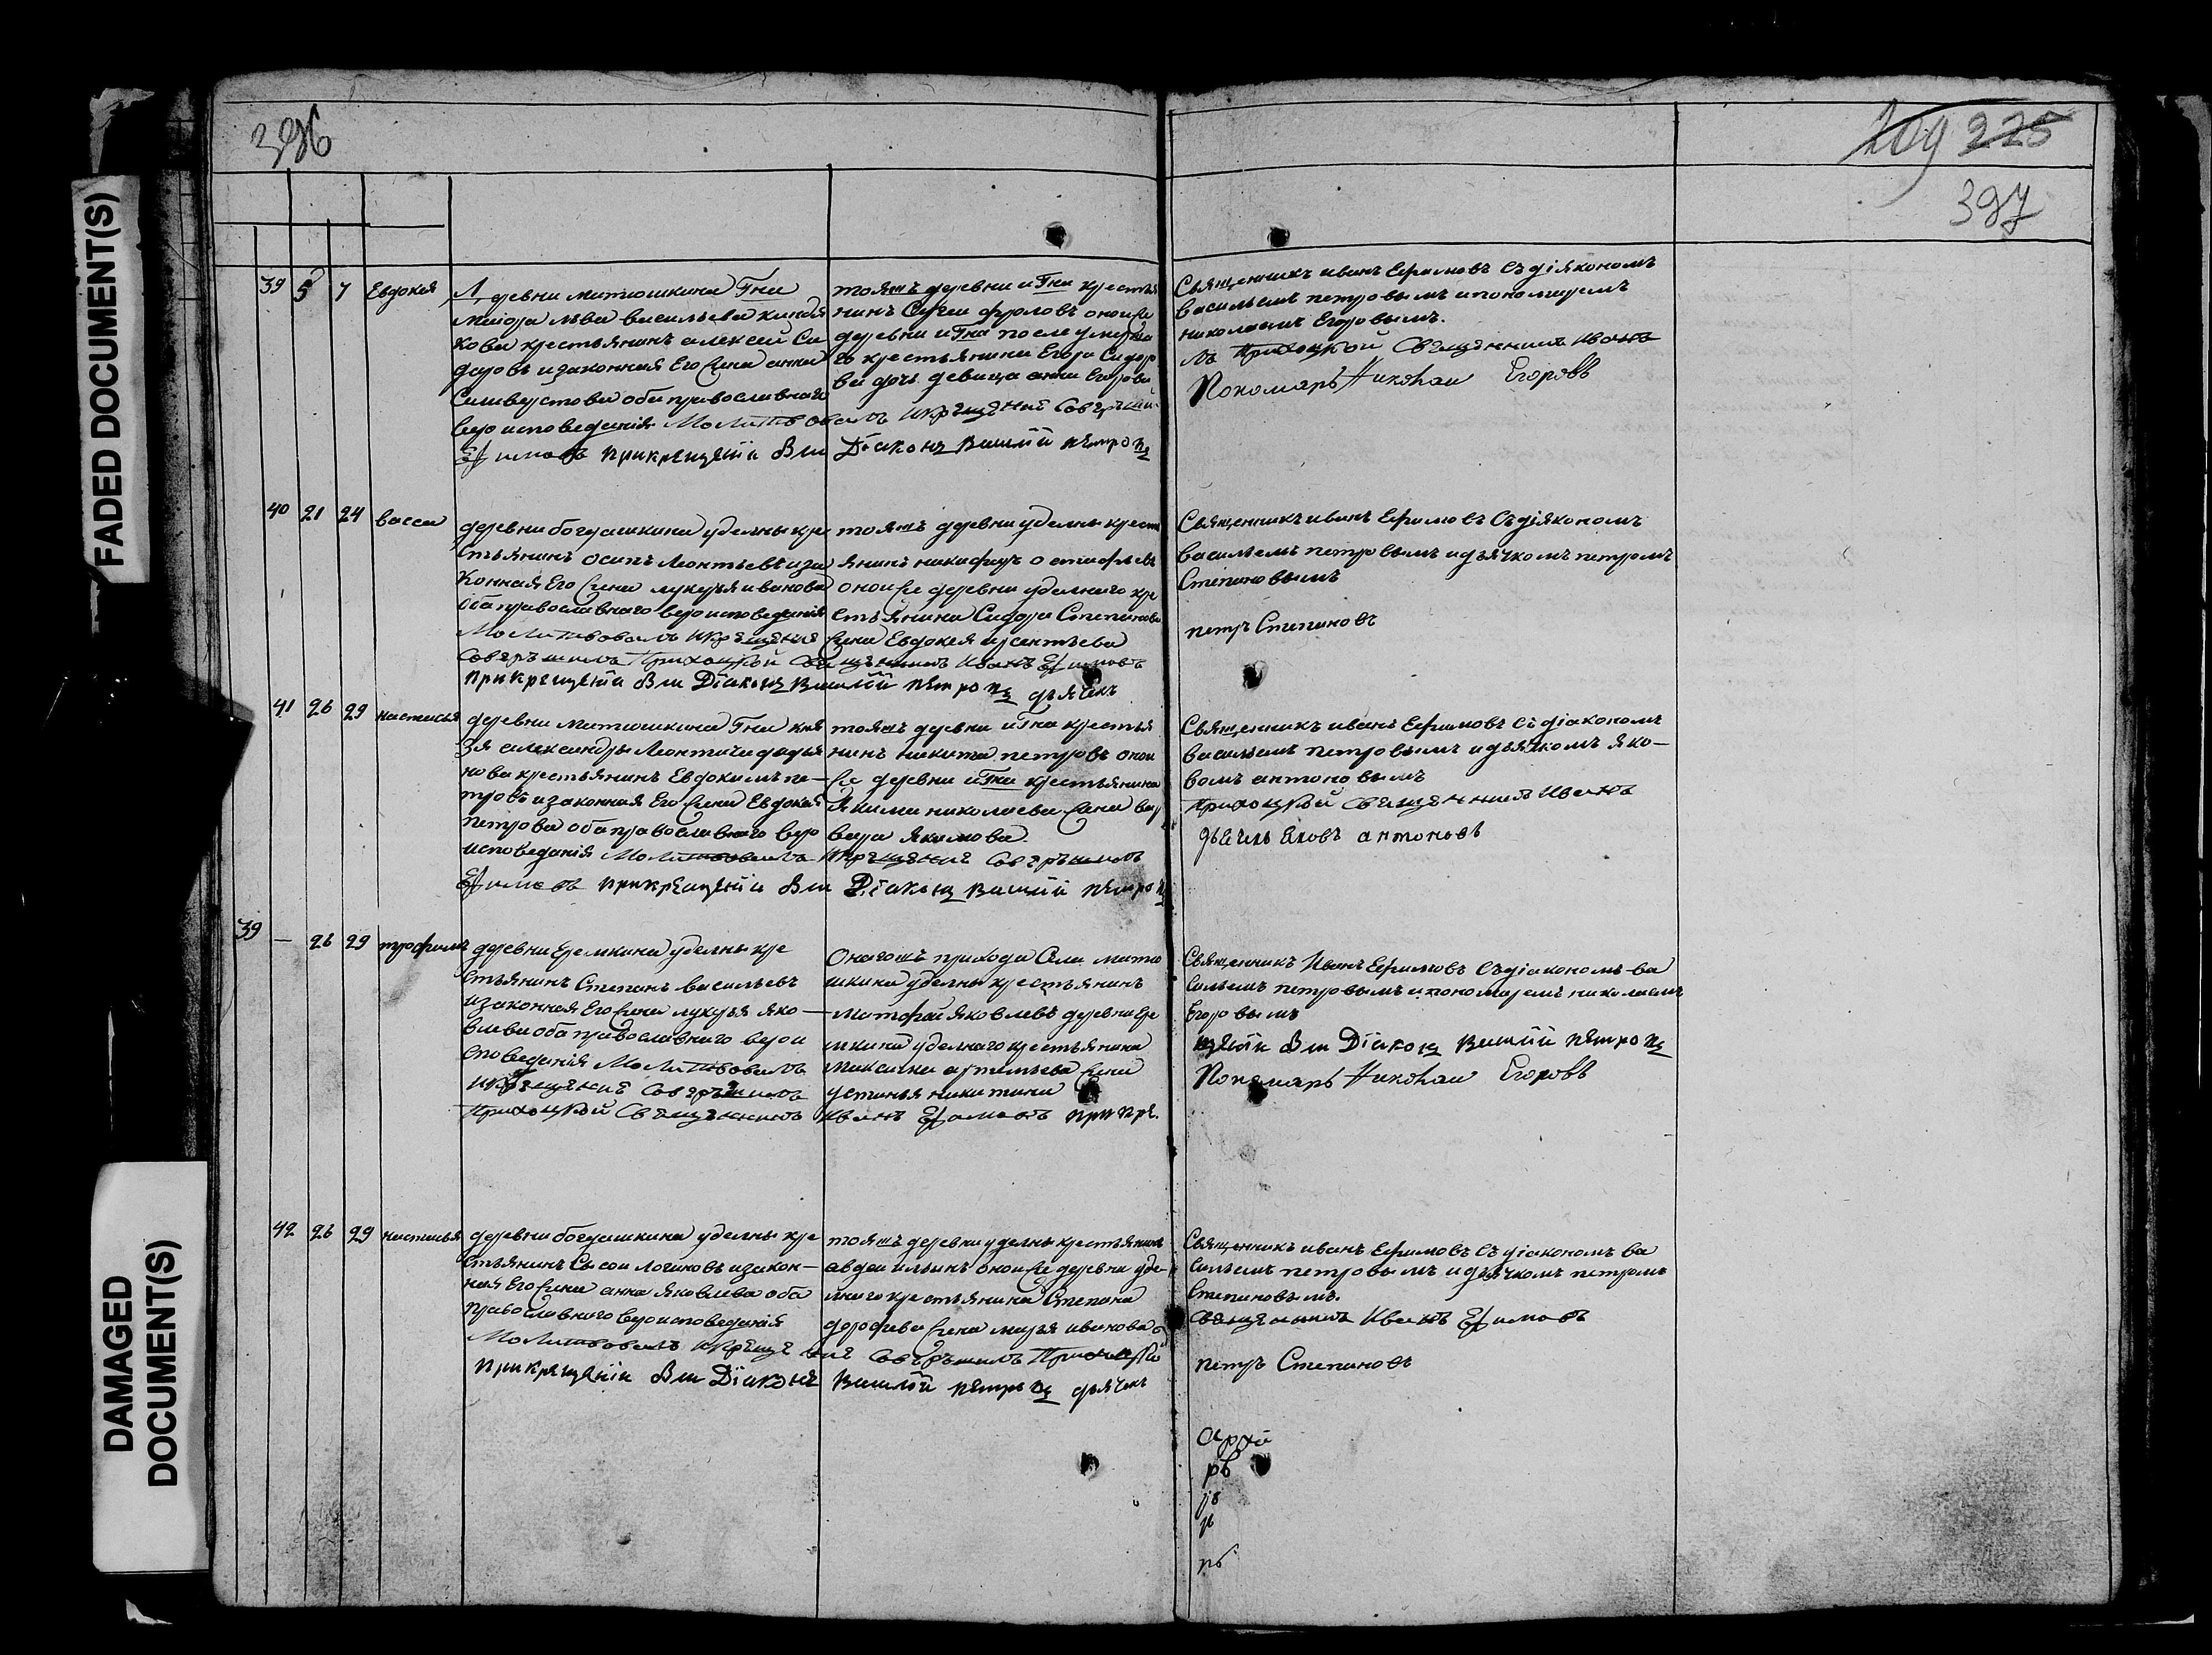 FADED DOCUMENT(S)
DAMAGED
DOCUMENT(S)
396
209 225
397
39 5 7 Евдокея
деревни матюшкина Гна
маиора льва васильева
кова крестьянинъ алексеи Си
доровъ изаконная Его жена анна
Силивустова оба православнаго
вероисповеданія Молитвовалъ
Ефимовъ прикрещеніи Был
тояжъ деревни и Гна крестья
нинъ Сергеи фроловъ оноиже
деревни и Гна после умерша
го крестьянина Егора Сидор
ва дочь девица анна Егорова
икрещение Соверши
Діаконъ Василій петровъ
Священникъ иванъ Ефимовъ Съ діякономъ
васильемъ петровымъ ипономаремъ
николаемъ Егоровымъ.
лъ Приходской Священникъ Иванъ
Пономарь Николаи Егоровъ
40 21 24 васса
деревни богдашкина уделны кре
стьянинъ осипъ Леонтьевъ иза
конная Его жена лукерья иванова
оба православнаго вероисповеданія
Молитвовалъ икрещение
Совершилъ Приходской Священникъ Иванъ Ефимовъ
прикрещеніи Был Діаконъ Василій петровъ дьячекъ
тояжъ деревни уделны крест
янинъ никифоръ
оноиже деревни уделнаго кре
стьянина Сидора Степанова
жена Евдокея арсентьева
Священникъ иванъ Ефимовъ Съ діякономъ
васильемъ петровымъ идьячкомъ петромъ
Степановымъ
петръ Степановъ
41 26 29 настасья
деревни матюшкина Гна кня
зя александры Леонтича дадья
нова крестьянинъ Евдокимъ пе-
тровъ изаконная Его жена Евдокея
петрова оба православнаго веро
исповеданія Молитвовалъ
Ефимовъ прикрещеніи Был
тояжъ деревни и Гна крестья
нинъ никита петровъ онои
же деревни и Гна крестьянина
Якима николаева жена вар
вара якимова
икрещение Совершилъ
Діаконъ Василій петровъ
Священникъ иванъ Ефимовъ Съ діякономъ
васильемъ петровымъ идьячкомъ яко-
вомъ антоновымъ
Приходской Священникъ Иванъ
дьечекъ Яковъ антоновъ
39 — 26 29 трофимъ
деревни Еремкина уделны кре
стьянинъ Степанъ васильевъ
изаконная Его жена лукерья яко-
влева оба православнаго верои
споведанія Молитвовалъ
икрещение Совершилъ
Приходской Священникъ
Оногожъ прихода Села матю
шкина уделны крестьянинъ
матфеи яковлевъ деревни Ере
мкина уделнаго крестьянина
максима артемьева жена
устинья никитина
Иванъ Ефимовъ при кре.
Священникъ Иванъ Ефимовъ Съ діакономъ ва
сильемъ петровымъ ипономаремъ николаемъ
Егоровымъ
щеніи Был Діаконъ Василій петровъ
Пономарь Николаи Егоровъ
42 26 29 настасья
деревни богдашкина уделны кре
стьянинъ Сысои логиновъ изакон-
ная Его жена анна яковлева оба
православнаго вероисповеданія
Молитвовалъ икреще
прикрещеніи Был Діаконъ
тояжъ деревни уделны крестьянинъ
авдеи ильинъ оноиже деревни уде-
лнаго крестьянина Степана
дорофева жена марья иванова
ніе Совершилъ Приходской
Василій петровъ дьячекъ
Священникъ иванъ Ефимовъ Съ діякономъ ва
сильемъ петровымъ идьячкомъ петромъ
Степановымъ.
Священникъ Иванъ Ефимовъ
петръ Степановъ